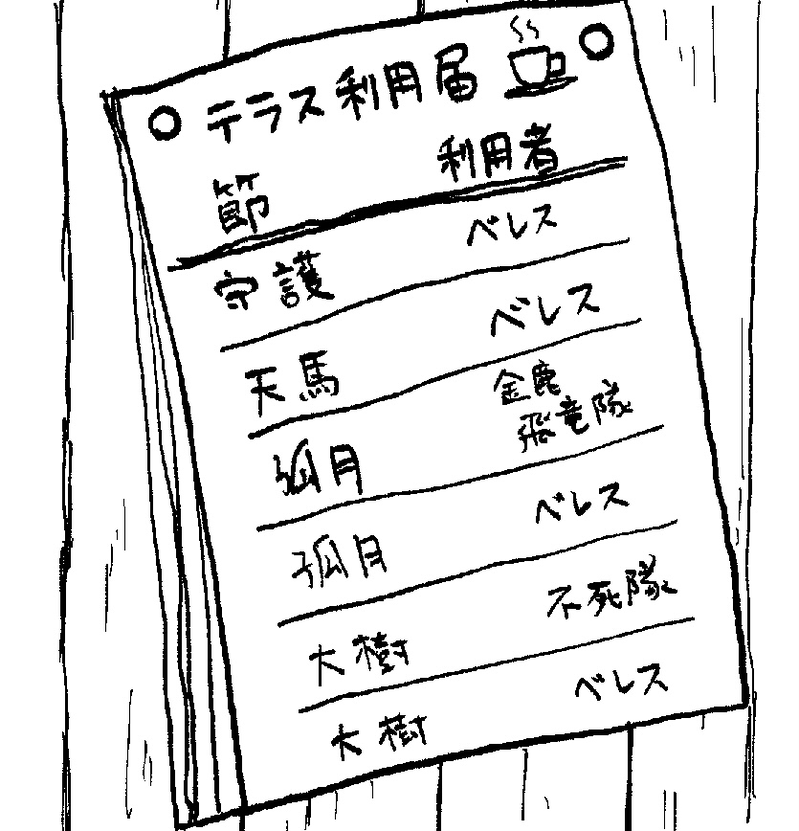 テラス利用届
節 利用者
守護 ベレス
天馬 ベレス
弧月 金鹿
飛竜隊
弧月 ベレス
大樹 不死隊
大樹 ベレス